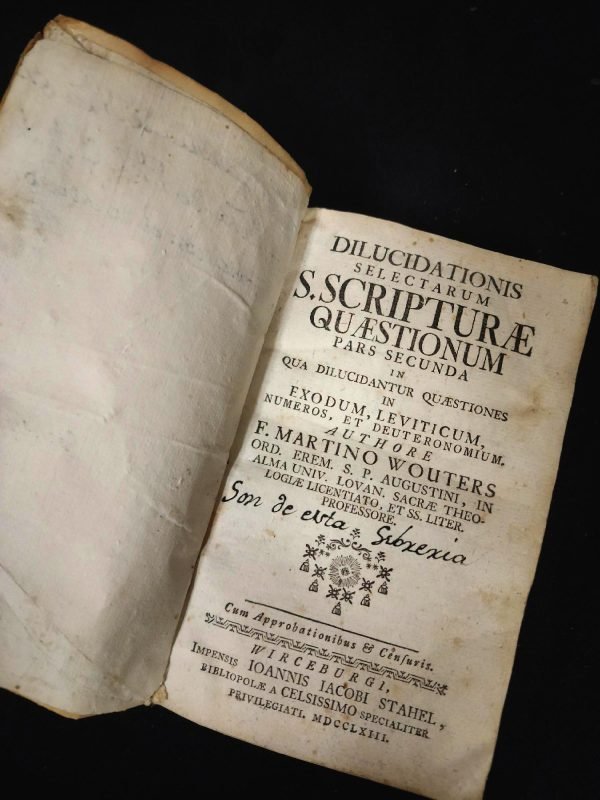 DILUCIDATIONIS
SELECTARUM
S. SCRIPTURÆ
QUÆSTIONUM
PARS SECUNDA
IN
QUA DILUCIDANTUR QUÆSTIONES
IN
EXODUM, LEVITICUM,
NUMEROS, ET DEUTERONOMIUM.
AUTHORE
F. MARTINO WOUTERS
ORD. EREM. S. P. AUGUSTINI, IN
ALMA UNIV. LOVAN. SACRÆ THEO-
LOGIÆ LICENTIATO, ET SS. LITER.
PROFESSORE.
Son de esta Libreria
Cum Approbationibus & Censuris.
WIRCEBURGI,
IMPENSIS IOANNIS IACOBI STAHEL,
BIBLIOPOLÆ A CELSISSIMO SPECIALITER
PRIVILEGIATI. MDCCLXIII.